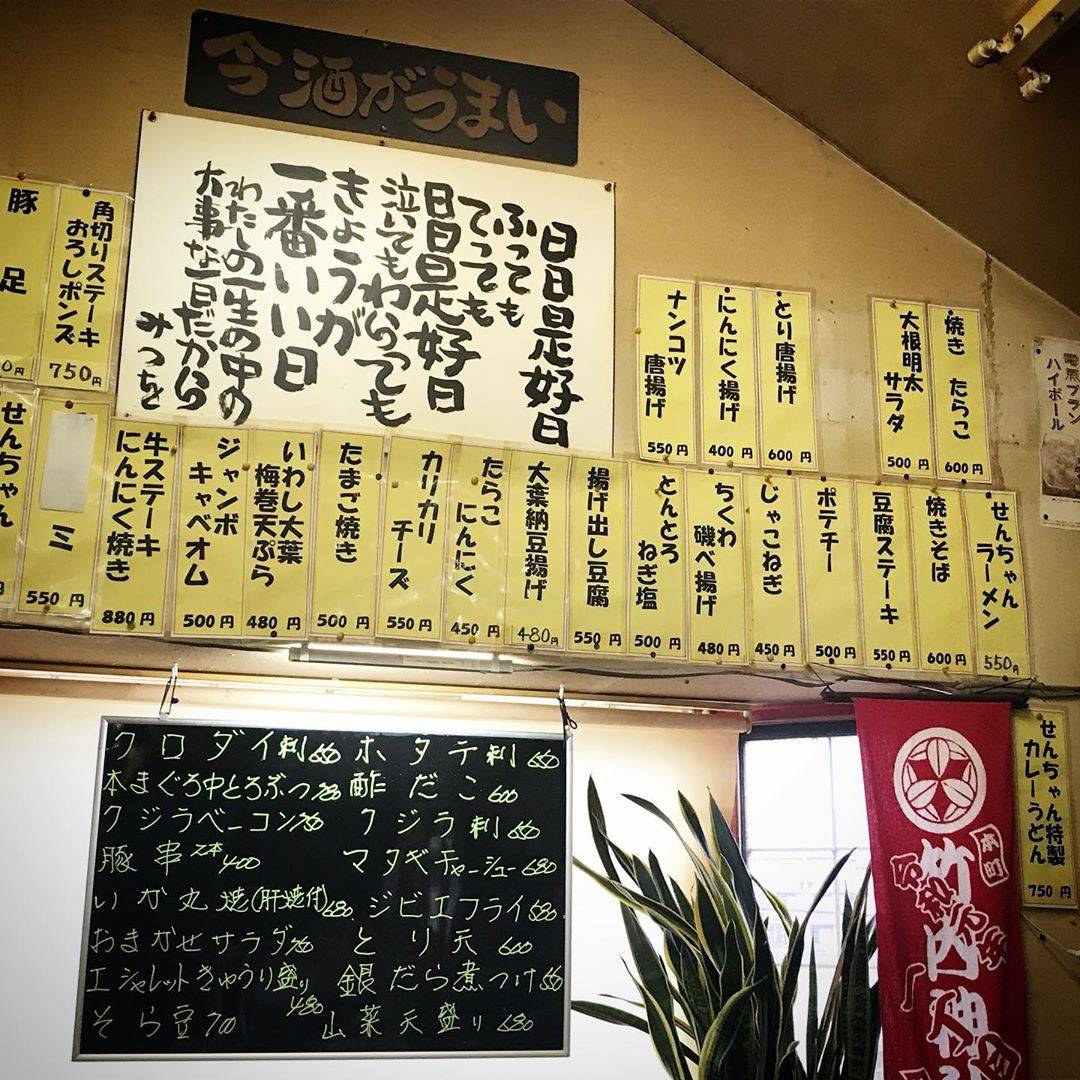 今酒がうまい
日日是好日
ふっても
てっても
日日是好日
泣いてもわらっても
きょうが
一番いい日
わたしの一生の中の
大事な一日だから
みつを
豚足
角切りステーキ
おろしポンズ
750円
ナンコツ
唐揚げ
550円
にんにく揚げ
400円
とり唐揚げ
600円
大根明太
サラダ
500円
焼きたらこ
600円
ハイボール
せんちゃん
ミ
550円
牛ステーキ
にんにく焼き
880円
ジャンボ
キャベオム
500円
いわし大葉
梅巻天ぷら
480円
たまご焼き
500円
カリカリ
チーズ
550円
たらこ
にんにく
450円
大葉納豆揚げ
480円
揚げ出し豆腐
550円
とんとろ
ねぎ塩
500円
ちくわ
磯べ揚げ
480円
じゃこねぎ
450円
ポテチー
500円
豆腐ステーキ
550円
焼きそば
600円
せんちゃん
ラーメン
550円
せんちゃん特製
カレーうどん
750円
クロダイ刺 ホタテ刺
本まぐろ中とろぶつ 酢だこ 600
クジラベーコン クジラ刺
豚串 2本 400 マタギチャーシュー 680
いか丸焼(肝焼付) 680 ジビエフライ 580
おまかせサラダ とり天 600
エシャレットきゅうり盛り 480 銀だら煮つけ
そら豆 700 山菜天盛り 680
本町
竹内神